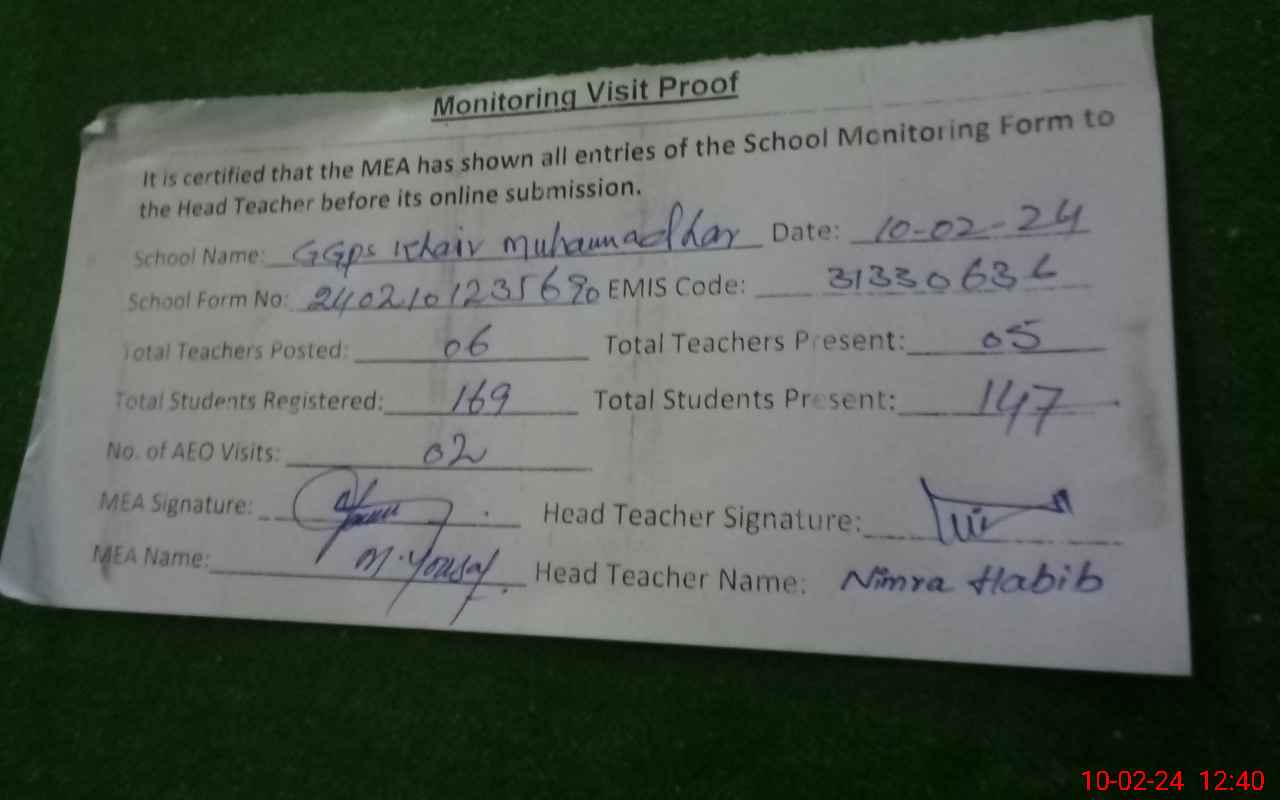 Monitoring Visit Proof
It is certified that the MEA has shown all entries of the School Monitoring Form to
the Head Teacher before its online submission.
School Name: GGps Khair muhammad Jhar Date: 10-02-24
School Form No: 2402101235690 EMIS Code: 31330636
Total Teachers Posted: 06 Total Teachers Present: 05
Total Students Registered: 169 Total Students Present: 147
No. of AEO Visits: 02
MEA Signature: Head Teacher Signature:
MEA Name: M. Yousaf Head Teacher Name: Nimra Habib
10-02-24 12:40